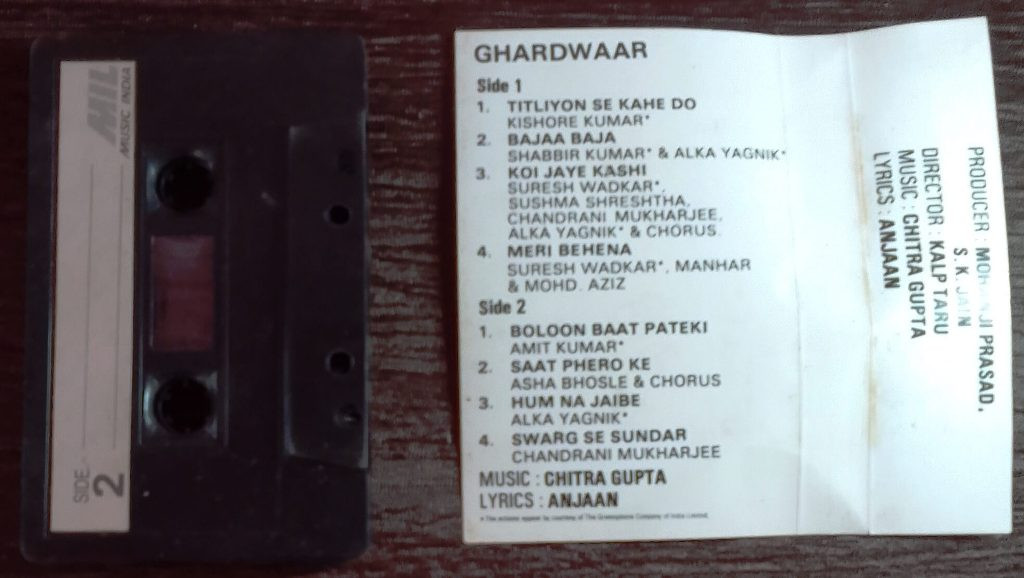 MIL
MUSIC INDIA
SIDE
2
GHARDWAAR
Side 1
1. TITLIYON SE KAHE DO
KISHORE KUMAR*
2. BAJAA BAJA
SHABBIR KUMAR* & ALKA YAGNIK*
3. KOI JAYE KASHI
SURESH WADKAR*,
SUSHMA SHRESHTHA,
CHANDRANI MUKHARJEE,
ALKA YAGNIK* & CHORUS.
4. MERI BEHENA
SURESH WADKAR*, MANHAR
& MOHD. AZIZ
Side 2
1. BOLOON BAAT PATEKI
AMIT KUMAR*
2. SAAT PHERO KE
ASHA BHOSLE & CHORUS
3. HUM NA JAIBE
ALKA YAGNIK*
4. SWARG SE SUNDAR
CHANDRANI MUKHARJEE
MUSIC : CHITRA GUPTA
LYRICS : ANJAAN
* The artistes appear by courtesy of The Gramophone Company of India Limited.
PRODUCER : PRASAD,
S. K. JAIN
DIRECTOR : KALP TARU
MUSIC : CHITRA GUPTA
LYRICS : ANJAAN